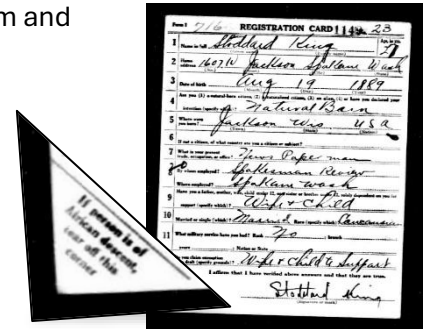 m and
Form 1 716 REGISTRATION CARD 23
1 Name in full Stoddard King Age, in yrs. 27
2 Home address 1607 W Jackson Spokane Wash
3 Date of birth Aug 19 1889
4 Are you (1) a natural-born citizen, (2) a naturalized citizen, (3) an alien, (4) or have you declared your
intention (specify which)? Natural Born
5 Where were you born? Jackson Wis USA
6 If not a citizen, of what country are you a citizen or subject?
7 What is your present trade, occupation, or office? News Paper man
8 By whom employed? Spokesman Review
Where employed? Spokane Wash
9 Have you a father, mother, wife, child under 12, or a sister or brother under 12, solely dependent on you for
support (specify which)? Wife + child
10 Married or single (which)? Married Race (specify which)? Caucasian
11 What military service have you had? Rank No branch
years Nation or State
12 Do you claim exemption from draft (specify grounds)? Wife + Child to Support
I affirm that I have verified above answers and that they are true.
Stoddard King
If person is of
African descent,
tear off this
corner